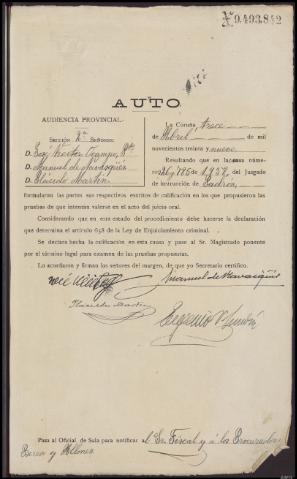 Nº 9.493.842
AUTO
AUDIENCIA PROVINCIAL.
Sección 2ª Señores:
D. Néstor Ocampo,
D. Manuel de
D. Plácido Martín
La Coruña, trece
de Abril de mil
novecientos treinta y nueve.
Resultando que en la causa núme-
ro 785 1937 del Juzgado
de Instrucción de Padrón,
formularon las partes sus respectivos escritos de calificación en los que propusieron las
pruebas de que intentan valerse en el acto del juicio oral.
Considerando que en este estado del procedimiento debe hacerse la declaración
que determina el artículo 658 de la Ley de Enjuiciamiento criminal.
Se declara hecha la calificación en esta causa y pase al Sr. Magistrado ponente
por el término legal para examen de las pruebas propuestas.
Lo acordaron y firman los señores del margen, de que yo Secretario certifico.
Manuel de
Plácido Martín
Eugenio
Pasa al Oficial de Sala para notificar al Sr. Fiscal y á los Procuradores
y